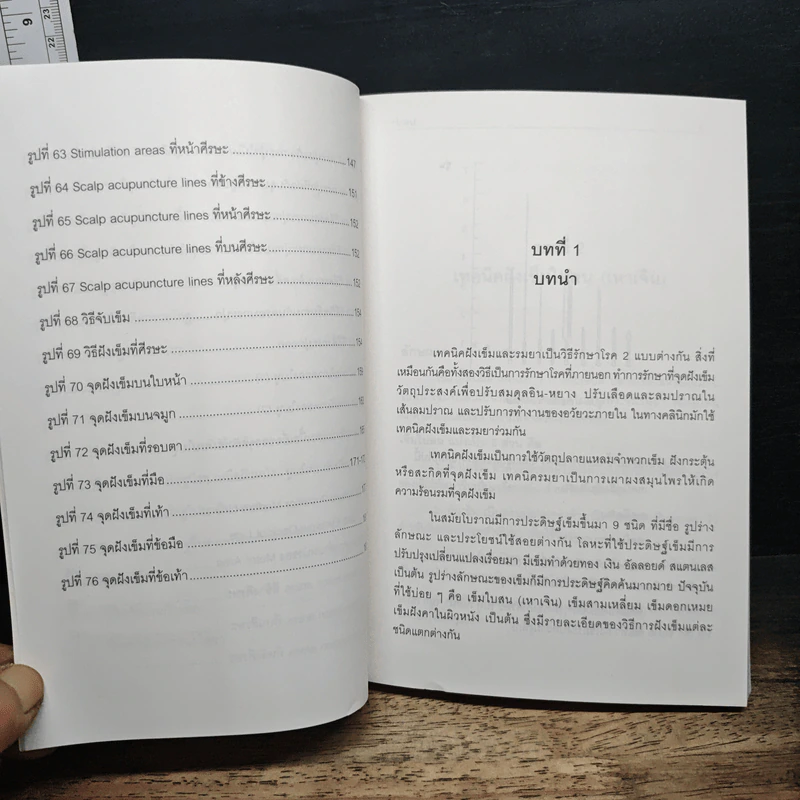 9
23
22
รูปที่ 63 Stimulation areas ที่หน้าศีรษะ ........ 147
รูปที่ 64 Scalp acupuncture lines ที่ข้างศีรษะ ........ 151
รูปที่ 65 Scalp acupuncture lines ที่หน้าศีรษะ ........ 152
รูปที่ 66 Scalp acupuncture lines ที่บนศีรษะ ........ 152
รูปที่ 67 Scalp acupuncture lines ที่หลังศีรษะ ........ 152
รูปที่ 68 วิธีจับเข็ม ........
รูปที่ 69 วิธีฝังเข็มที่ศีรษะ ........
รูปที่ 70 จุดฝังเข็มบนใบหน้า ........
รูปที่ 71 จุดฝังเข็มบนจมูก ........
รูปที่ 72 จุดฝังเข็มที่รอบตา ........
รูปที่ 73 จุดฝังเข็มที่มือ ........ 171-17
รูปที่ 74 จุดฝังเข็มที่เท้า ........
รูปที่ 75 จุดฝังเข็มที่ข้อมือ ........
รูปที่ 76 จุดฝังเข็มที่ข้อเท้า ........
บทที่ 1
บทนำ
เทคนิคฝังเข็มและรมยาเป็นวิธีรักษาโรค 2 แบบต่างกัน สิ่งที่
เหมือนกันคือทั้งสองวิธีเป็นการรักษาโรคที่ภายนอก ทำการรักษาที่จุดฝังเข็ม
วัตถุประสงค์เพื่อปรับสมดุลอิน-หยาง ปรับเลือดและลมปราณใน
เส้นลมปราณ และปรับการทำงานของอวัยวะภายใน ในทางคลินิกมักใช้
เทคนิคฝังเข็มและรมยาร่วมกัน
เทคนิคฝังเข็มเป็นการใช้วัตถุปลายแหลมจำพวกเข็ม ฝังกระตุ้น
หรือสะกิดที่จุดฝังเข็ม เทคนิครมยาเป็นการเผาผงสมุนไพรให้เกิด
ความร้อนรมที่จุดฝังเข็ม
ในสมัยโบราณมีการประดิษฐ์เข็มขึ้นมา 9 ชนิด ที่มีชื่อ รูปร่าง
ลักษณะ และประโยชน์ใช้สอยต่างกัน โลหะที่ใช้ประดิษฐ์เข็มมีการ
ปรับปรุงเปลี่ยนแปลงเรื่อยมา มีเข็มทำด้วยทอง เงิน อัลลอยด์ สแตนเลส
เป็นต้น รูปร่างลักษณะของเข็มก็มีการประดิษฐ์คิดค้นมากมาย ปัจจุบัน
ที่ใช้บ่อย ๆ คือ เข็มใบสน (เหาเจิน) เข็มสามเหลี่ยม เข็มดอกเหมย
เข็มฝังคาในผิวหนัง เป็นต้น ซึ่งมีรายละเอียดของวิธีการฝังเข็มแต่ละ
ชนิดแตกต่างกัน